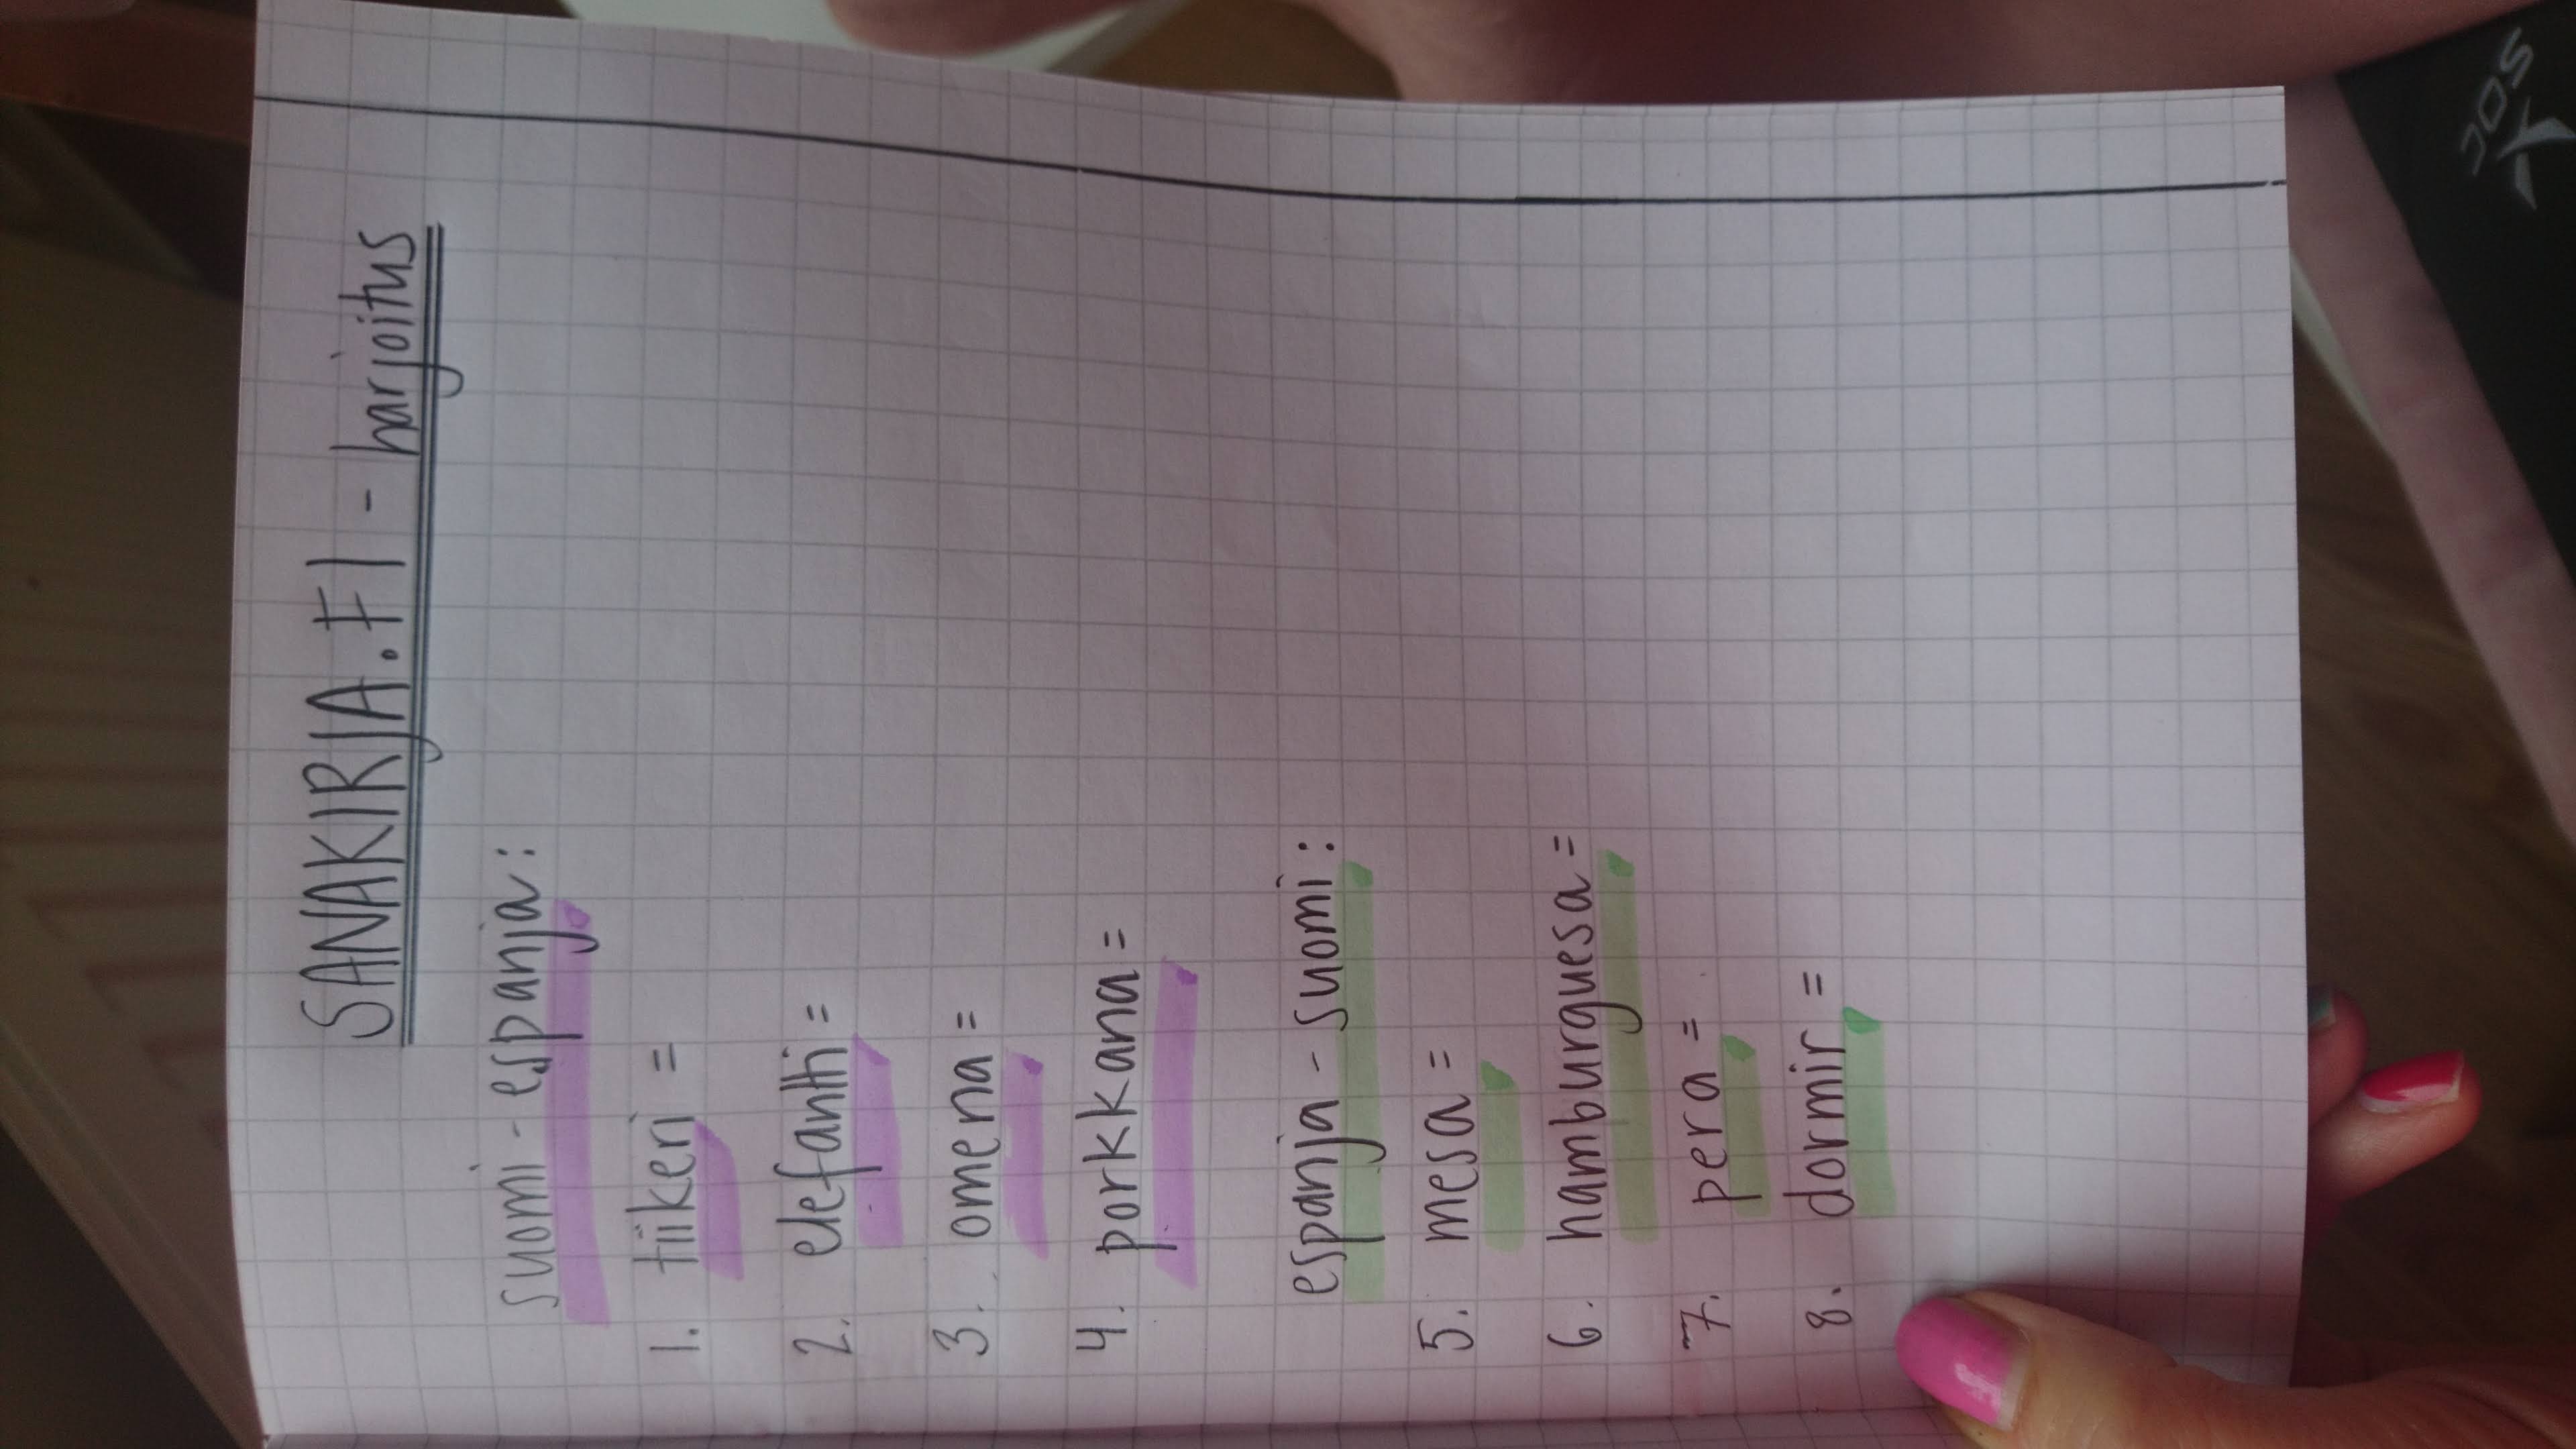 SANAKIRJA.FI - harjoitus
suomi - espanja:
1. tiikeri =
2. elefantti =
3. omena =
4. porkkana =
espanja - suomi:
5. mesa =
6. hamburguesa =
7. pera =
8. dormir =